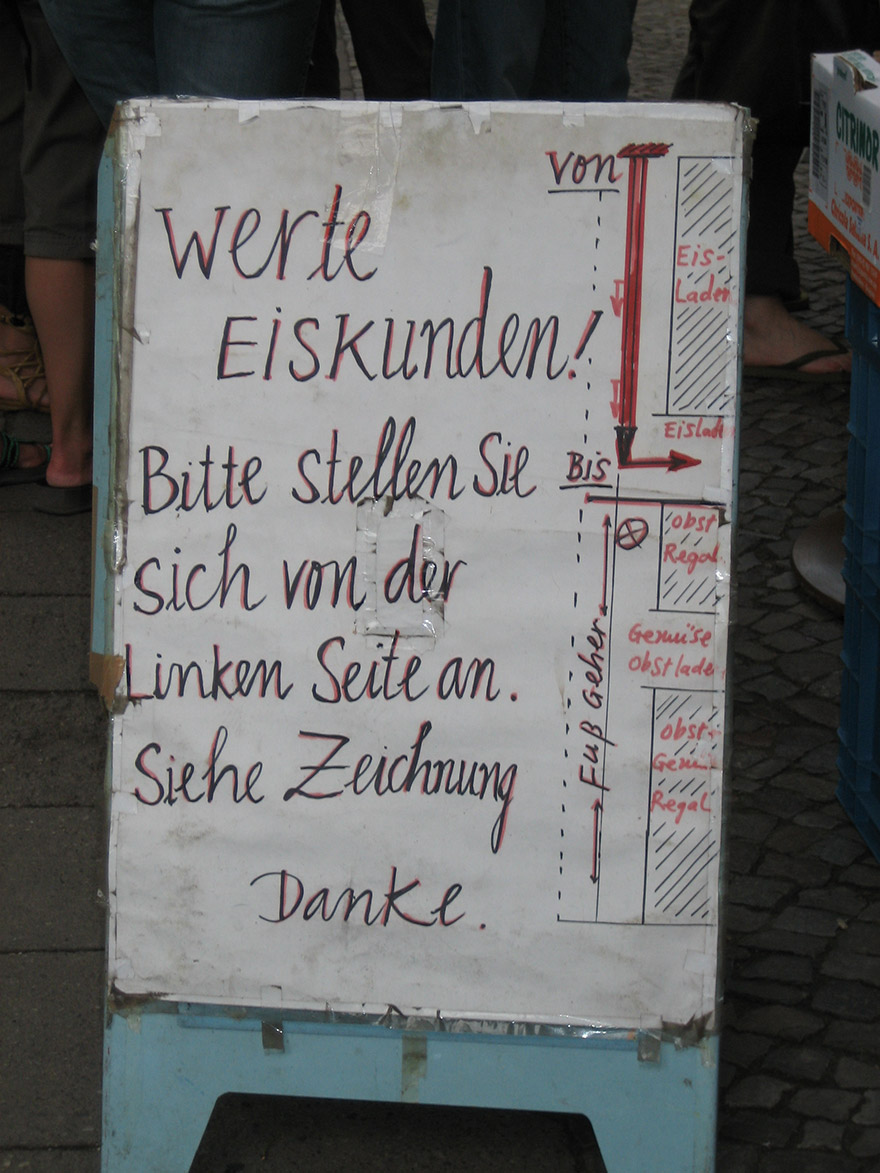 Werte
Eiskunden!
Bitte stellen Sie
sich von der
Linken Seite an.
Siehe Zeichnung
Danke.
von
Eis-
Laden
Eislade
Bis
obst
Regal
Gemüse
Obstlade
Fuß Geher
obst-
Gemü
Regal
CITRIMOR